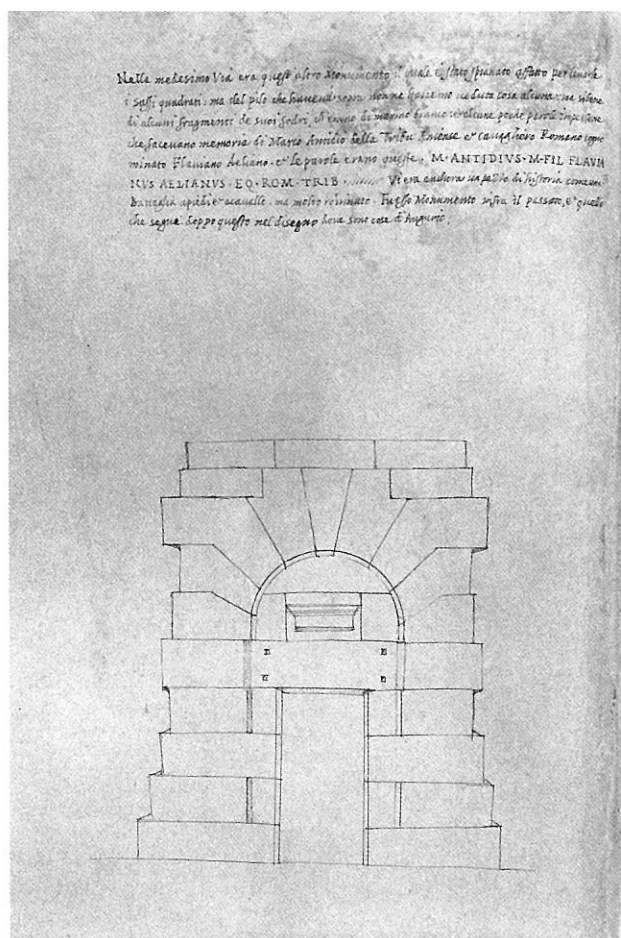 Nella medesimo Via era quest altro Monumento il quale è stato spianato affatto per levarne
i sassi quadrati; ma del pilo che haveva sopra non ne havemo veduta cosa alcuna: ma
di alcuni fragmenti de suoi di marmo bianco et alcune poche parole
che facevano memoria di Marco Antidio della Tribu et Cavagliero Romano
minato Flaviano Aeliano. et le parole erano queste, M · ANTIDIVS · M · FIL FLAVIA
NVS AELIANVS · EQ · ROM · TRIB · Vi era anchora un pezzo di historia come una
Battaglia apiedi et acavallo. ma molto roinnato. Fu esso Monumento infra il passato, e quello
che segue doppo questo nel disegno dove sono cose d'Augurio.